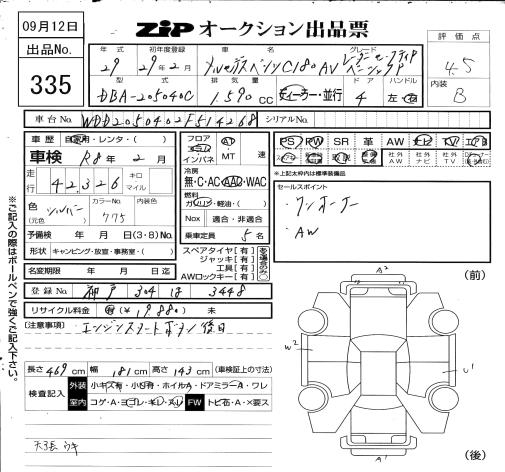 09月12日
ZIP オークション出品票
出品No.
335
評価点
4.5
内装
B
年式 初年度登録 車名 グレード
29 29年2月 メルセデスベンツC180AV
型式 排気量 ドア ハンドル
DBA-205040C 1,590cc ディーラー・並行 4 左・右
車台No. WDD2050402F514268 シリアルNo.
車歴 自家用・レンタ・( )
車検 R8年2月
走行 42,326 キロ マイル
色(元色) シルバー カラーNo. 775 内装色
予備検 年 月 日(3・8)No.
形状 キャンピング・放宣・事務室・( )
名変期限 年 月 日迄
フロア コラム インパネ AT MT 速
冷房 無・C・AC・AAC・WAC
燃料 ガソリン・軽油・( )
Nox 適合・非適合
乗車定員 5名
スペアタイヤ【有】
ジャッキ【有】
工具【有】
AWロックキー【有】
PS PW SR 革 AW ナビ TV
社外AW 社外ナビ 社外TV
*上記太枠内は標準装備品
セールスポイント
・ワンオーナー
・AW
登録No. 神戸 304 は 3448
リサイクル料金 有(¥19,880) 未
[注意事項] エンジンスタートボタン後日
長さ469cm 幅181cm 高さ143cm (車検証上の寸法)
検査記入 外装 小キズ有・小凹有・ホイルA・ドアミラーA・ワレ
室内 コゲ・A・ヨゴレ・キレ・スレ FW トビ石・A・×要ス
天張ウキ
(前)
A2
W2
U1
A2
(後)
ご記入の際はボールペンで強くご記入下さい。